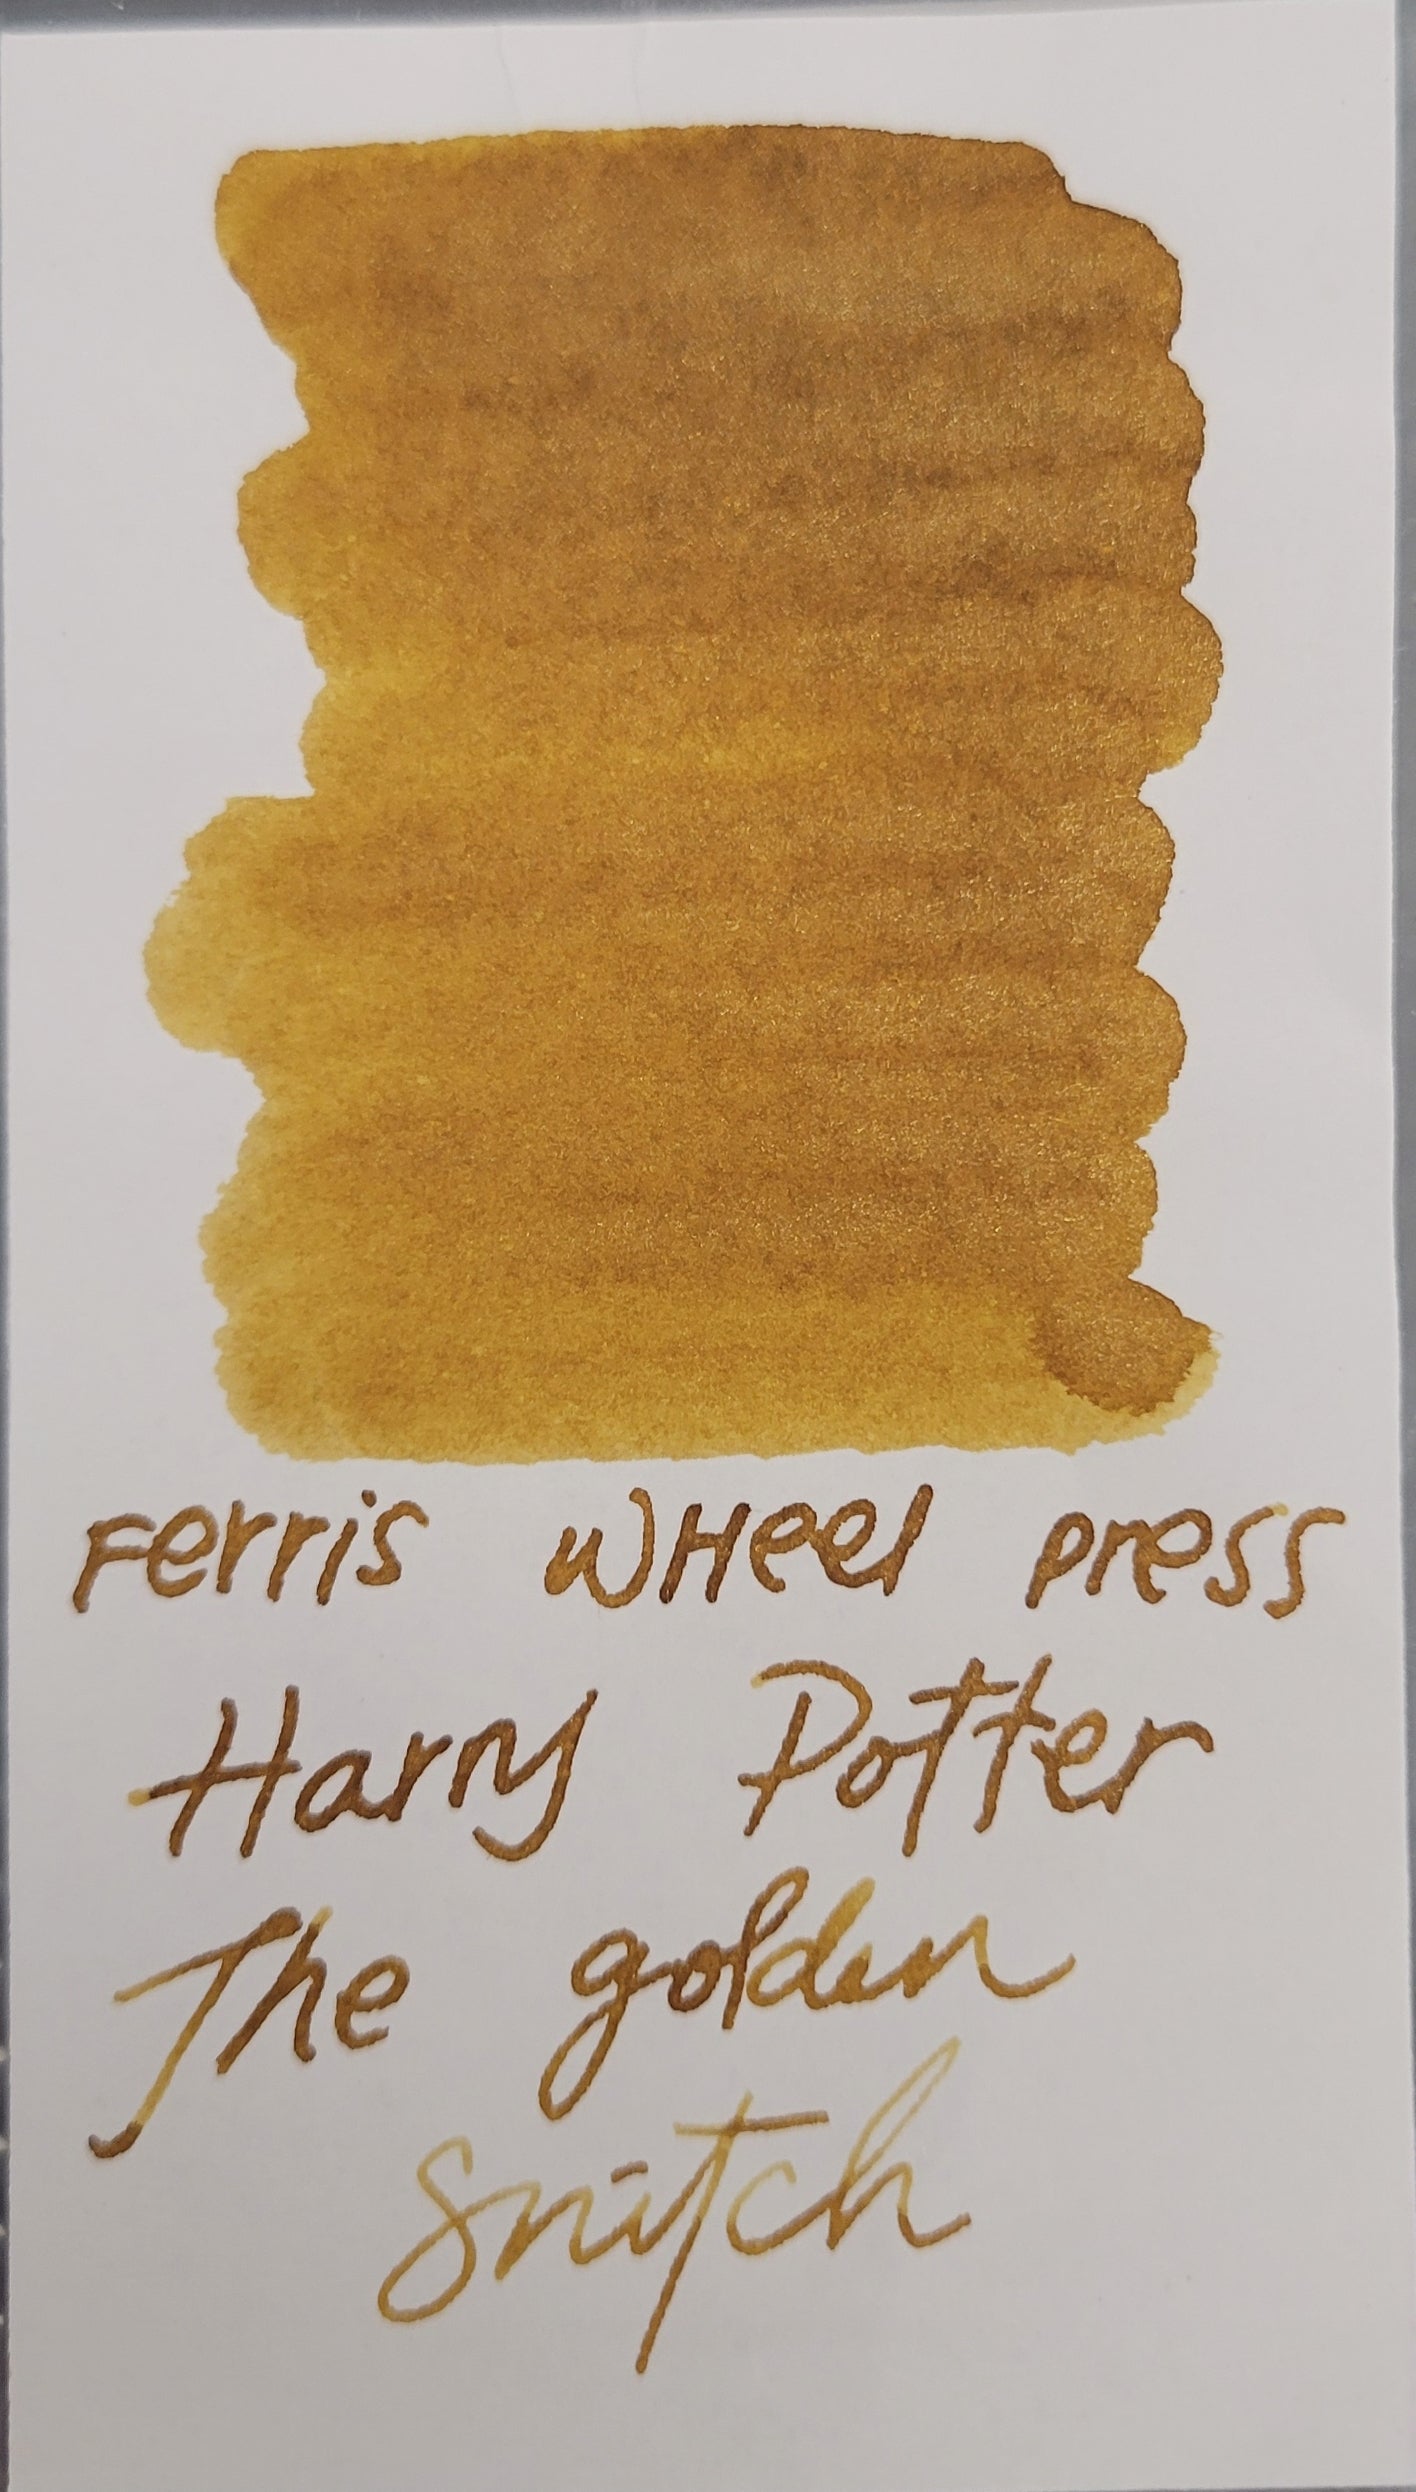 Ferris WHeel press
Harry Potter
The golden
Snitch